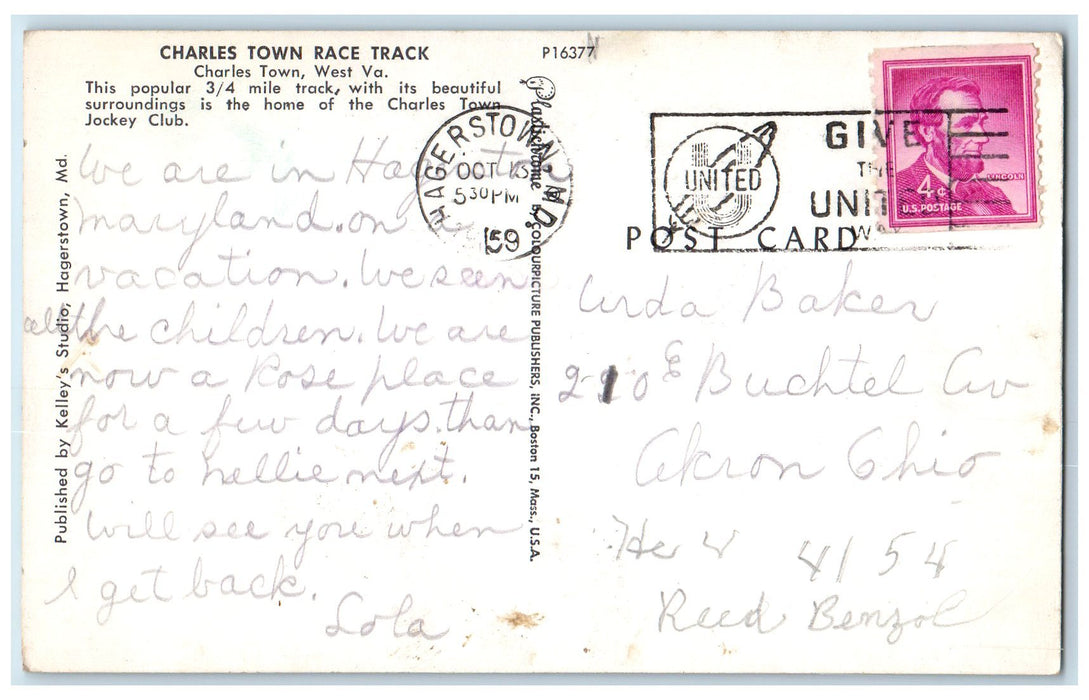 CHARLES TOWN RACE TRACK
Charles Town, West Va.
This popular 3/4 mile track, with its beautiful
surroundings is the home of the Charles Town
Jockey Club.
P16377
HAGERSTOWN, MD.
OCT 13
5 30 PM
1959
UNITED
GIVE
THE
UNITED
WAY
4¢
LINCOLN
U.S. POSTAGE
POST CARD
Published by Kelley's Studio, Hagerstown, Md.
Plastichrome by COLOURPICTURE PUBLISHERS, INC., Boston 15, Mass., U.S.A.
We are in
maryland. on
vacation. We seen
all the children. We are
now a Rose place
for a few days. than
go to nellie next.
will see you when
I get back.
Lola
Baker
210 E Buchtel Av
Akron Ohio
4154
Reed Benzol